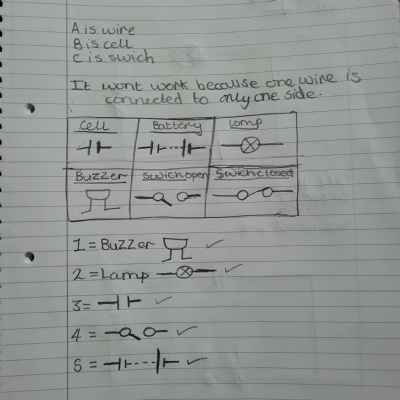 A is wire
B is cell
C is swich
It wont work because one wire is
connected to only one side.
Cell Battery Lamp
Buzzer Swich open Swich closed
1 = Buzzer
2 = Lamp
3 =
4 =
5 =